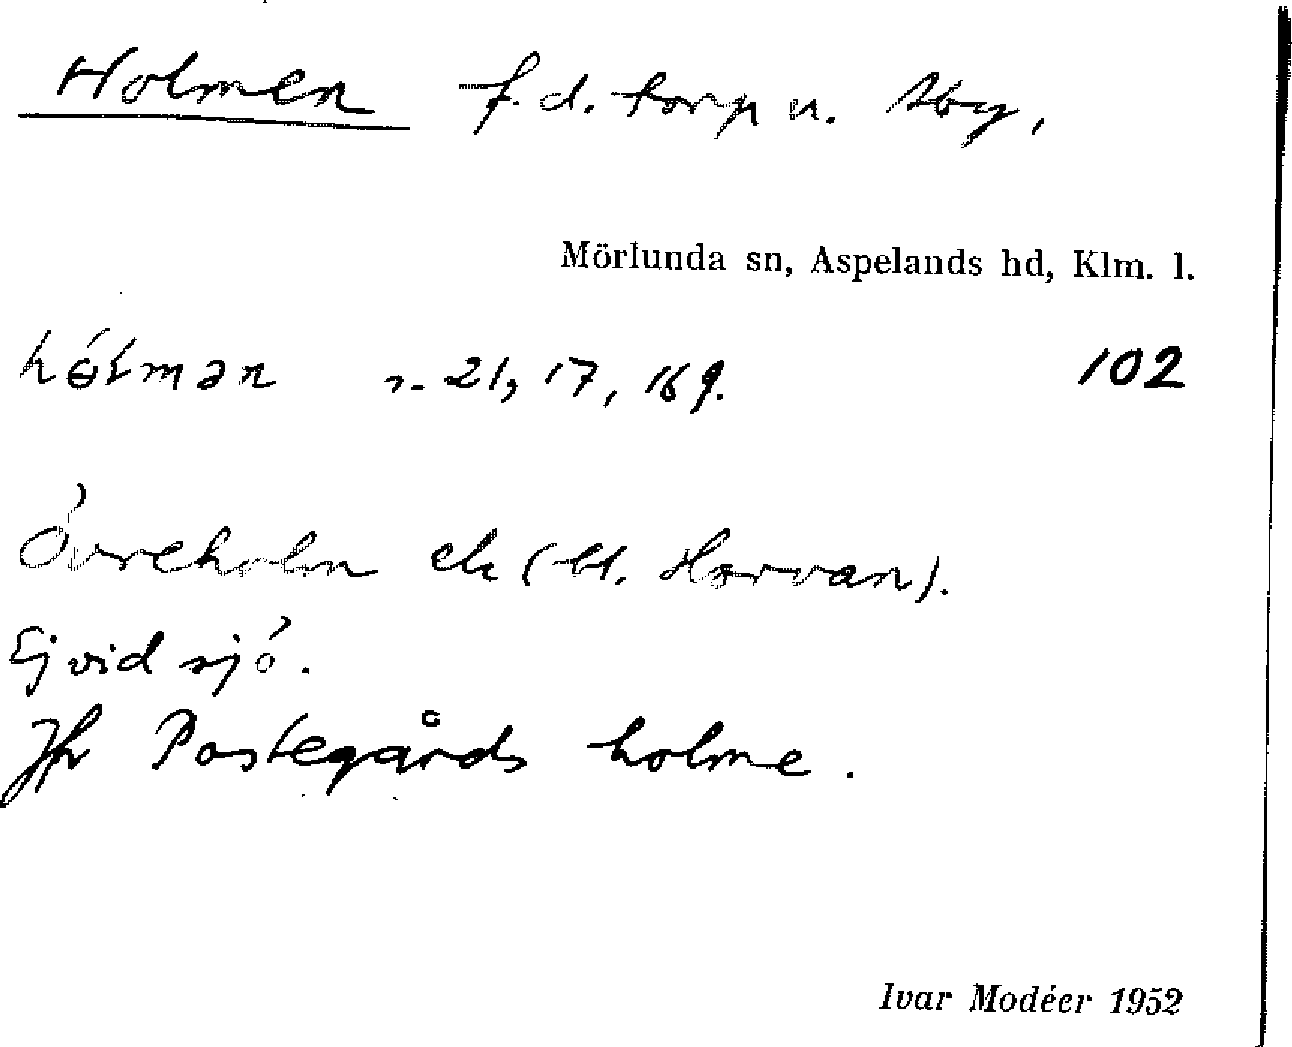 Holmen f.d. torp u. Åby,
Mörlunda sn, Aspelands hd, Klm. l.
hólmən 21, 17, 169. 102
Övreholm ek (bl. Horvan).
Ej vid sjö.
Jfr Postegårds holme.
Ivar Modéer 1952